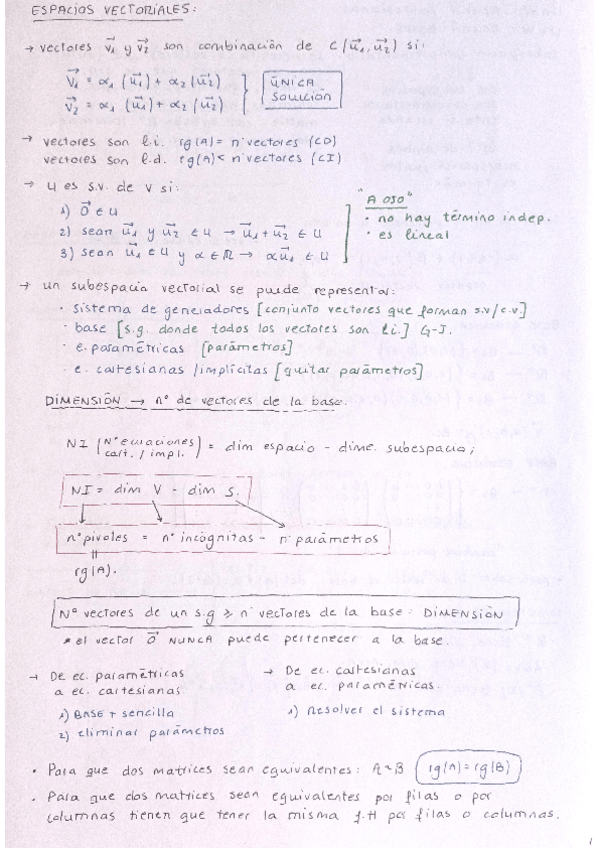 ESPACIOS VECTORIALES:
→ vectores v⃗₁ y v⃗₂ son combinación de C(u⃗₁, u⃗₂) si:
v⃗₁ = α₁ (u⃗₁) + α₂ (u⃗₂)
v⃗₂ = α₁ (u⃗₁) + α₂ (u⃗₂)
ÚNICA
SOLUCIÓN
→ vectores son l.i. rg(A) = nº vectores (CD)
vectores son l.d. rg(A) < nº vectores (CI)
→ U es s.v. de V si:
1) 0⃗ ∈ U
2) sean u⃗₁ y u⃗₂ ∈ U → u⃗₁ + u⃗₂ ∈ U
3) sean u⃗₁ ∈ U y α ∈ ℝ → α u⃗₁ ∈ U
"A OJO"
· no hay término indep.
· es lineal
→ un subespacio vectorial se puede representar:
· sistema de generadores [conjunto vectores que forman s.v/c.v]
· base [s.g. donde todos los vectores son l.i.] G-J.
· e. paramétricas [parámetros]
· e. cartesianas /implícitas [quitar parámetros]
DIMENSIÓN → nº de vectores de la base.
NI (Nº ecuaciones cart. / impl.) = dim espacio - dime. subespacio;
NI = dim V - dim S.
nº pivotes = nº incógnitas - nº parámetros
rg(A).
Nº vectores de un s.g ≥ nº vectores de la base: DIMENSIÓN
* el vector 0⃗ NUNCA puede pertenecer a la base.
→ De ec. paramétricas
a ec. cartesianas
1) BASE + sencilla
2) eliminar parámetros
→ De ec. cartesianas
a ec. paramétricas.
1) Resolver el sistema
· Para que dos matrices sean equivalentes: A ~ B rg(A) = rg(B)
· Para que dos matrices sean equivalentes por filas o por
columnas tienen que tener la misma f.H por filas o columnas.
1